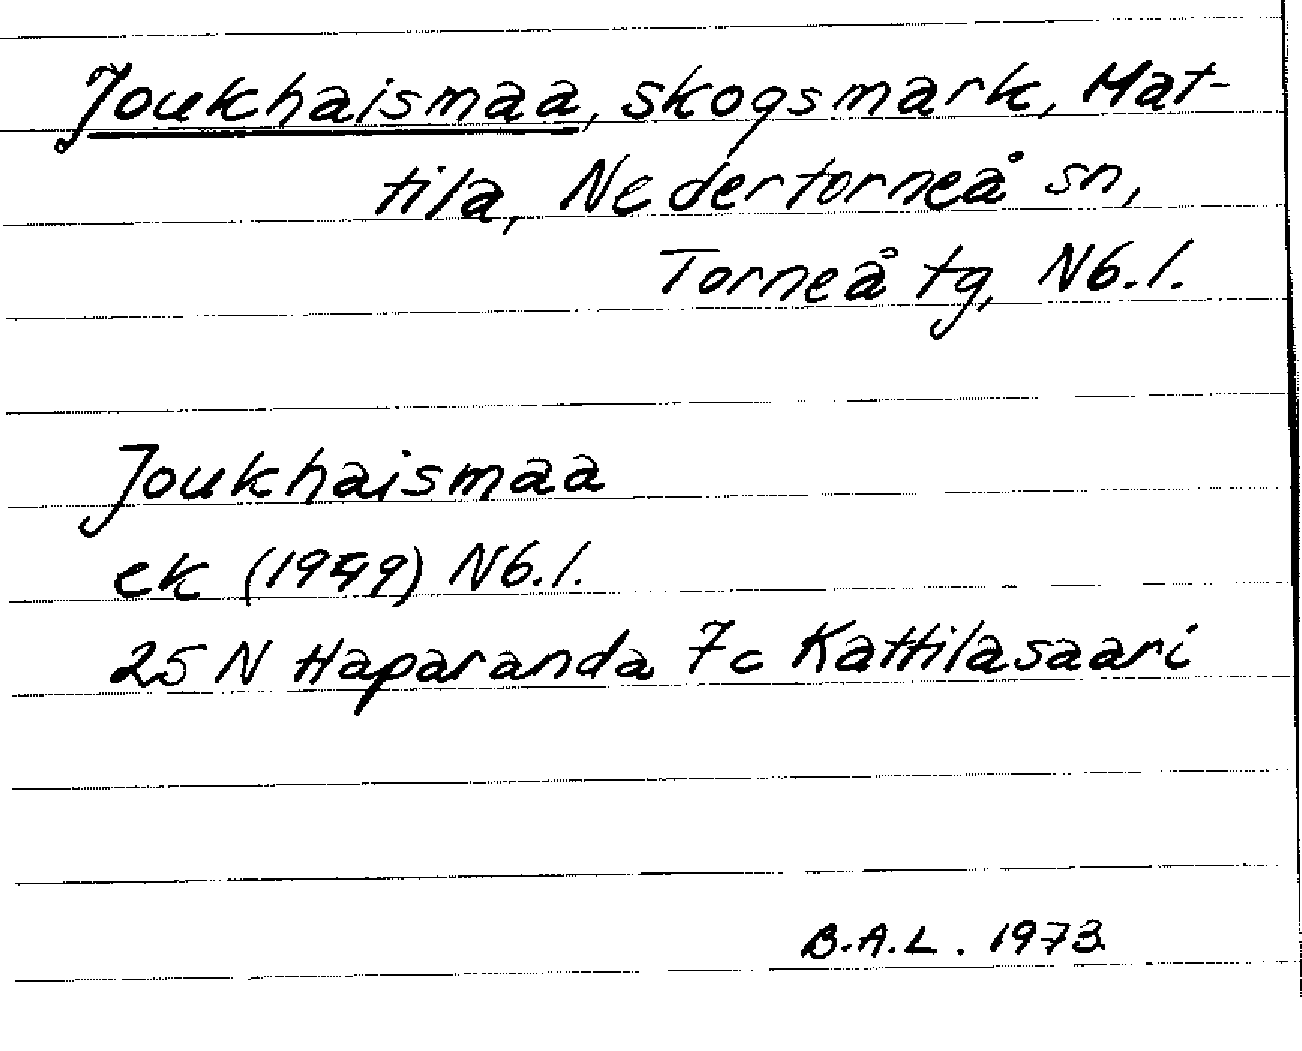 Joukhaismaa, skogsmark, Mat-
tila, Nedertorneå sn,
Torneå tg, Nb.l.
Joukhaismaa
ek (1949) Nb.l.
25 N Haparanda 7c Kattilasaari
B.A.L. 1973